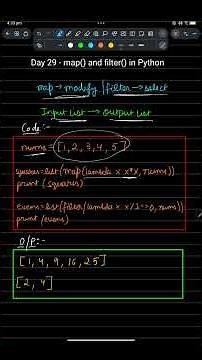 4:33 pm
Day 29 - map() and filter() in Python
map → modify | filter → select
Input List → Output List
Code:-
nums = [1, 2, 3, 4, 5]
squares = list(map(lambda x: x*x, nums))
print (squares)
evens = list(filter(lambda x: x%2==0, nums))
print (evens)
O/P:-
[1, 4, 9, 16, 25]
[2, 4]